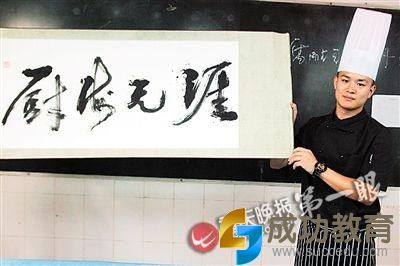 厨海无涯
天晚报 第一眼
成功教育
www.succedu.com